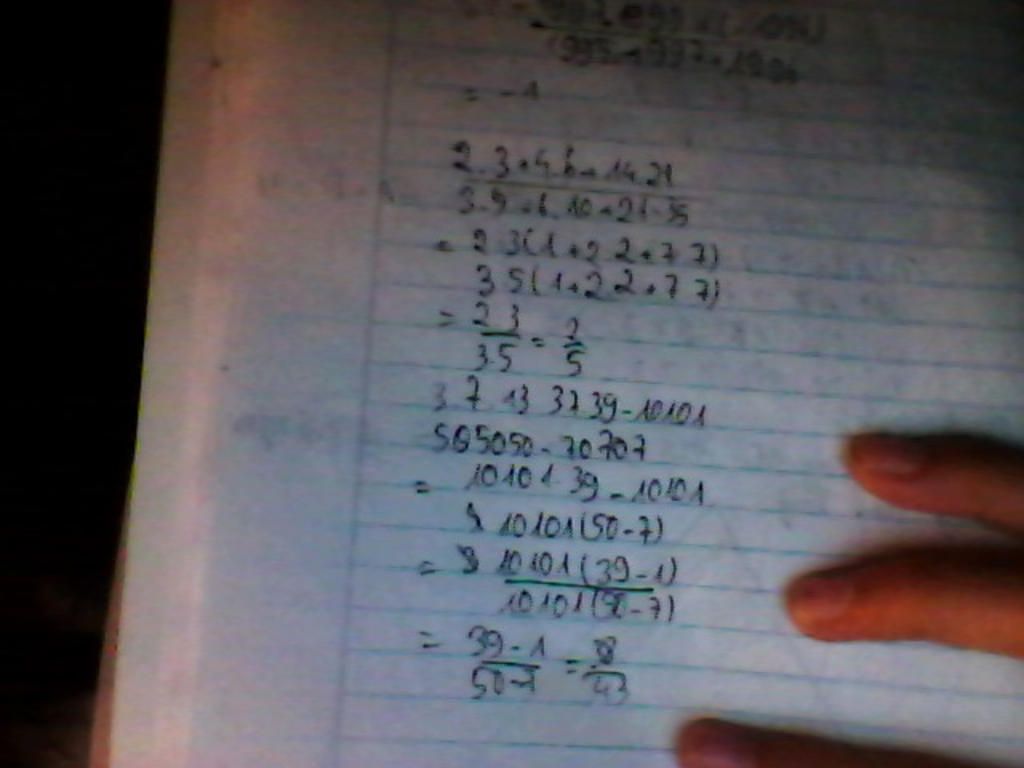 = -1
2.3+4.6+14.21
3.5+6.10+21.35
= 2 3(1+2 2+7 7)
3 5(1+2 2+7 7)
= 2 3 / 3.5 = 2 / 5
3 7 13 37 39-10101
505050-70707
= 10101 39-10101
10101(50-7)
= 10101(39-1)
10101(50-7)
= 39-1 / 50-7 = 38 / 43